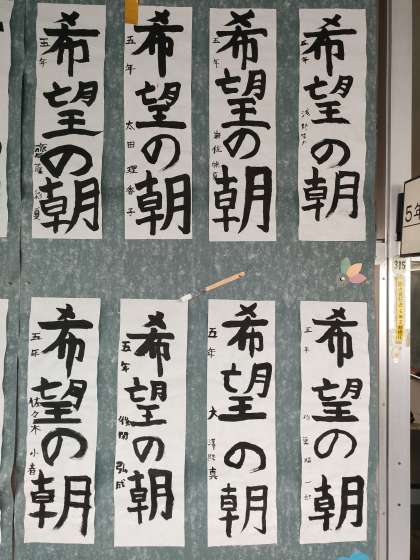 希望の朝
五年
希望の朝
五年 太田理香子
希望の朝
五年
希望の朝
五年
希望の朝
五年 佐々木小春
希望の朝
五年 弘成
希望の朝
五年 真
希望の朝
五年
5年
315